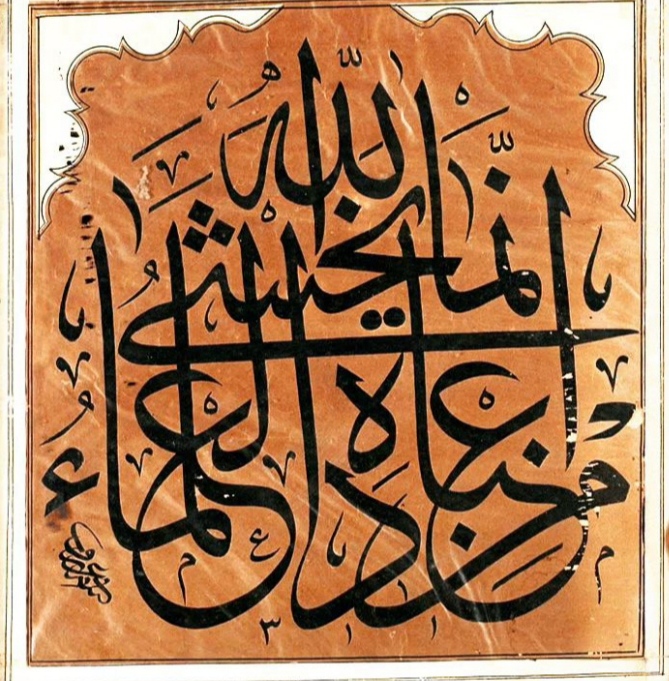 إنما يخشى الله
من عباده العلماء